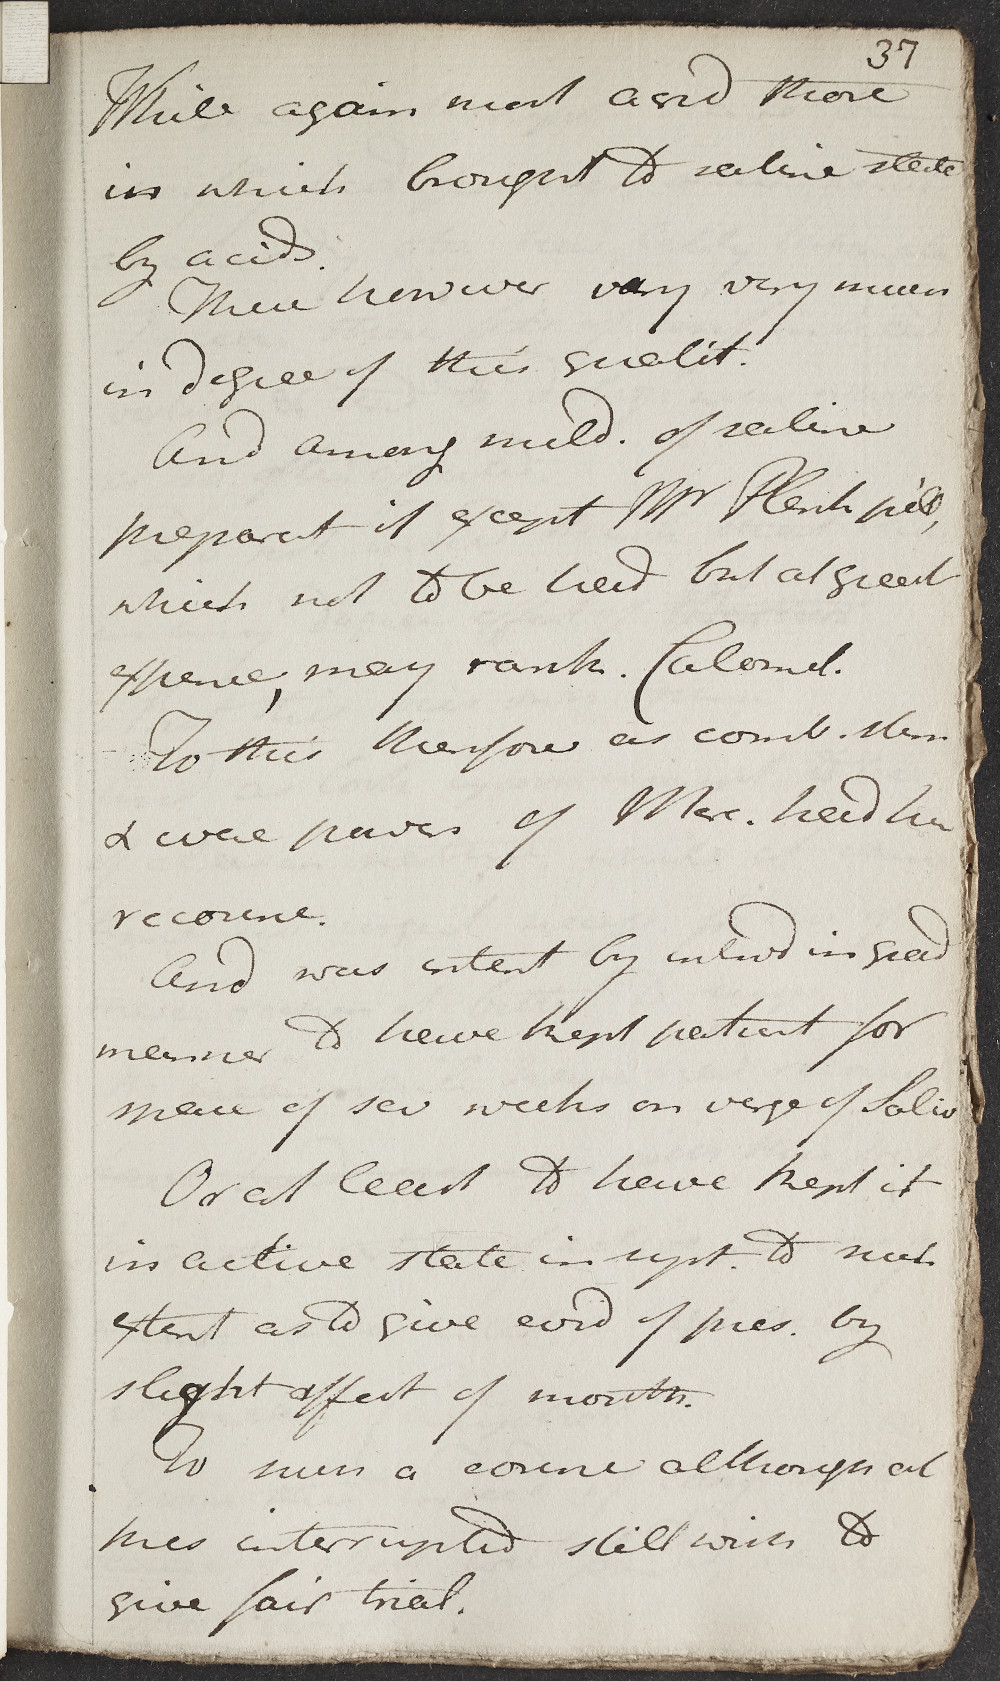 37
While again most acrid those
in which brought to saline state
by acids.
These however vary very much
in degree of this qualit.
And among mild. of saline
preparat if except Mr Plenk pill,
which not to be had but at great
expence, may rank. Calomel.
To this therefore as comb. slum
& whole powers of Merc. had here
recourse.
And was intent by introd in grad
manner to have kept patient for
space of sev weeks on verge of Saliv
Or at least to have kept it
in active state in syst. to such
extent as to give evid of pres. by
slight affect of mouth.
To such a course although at
pres interrupted still wish to
give fair trial.